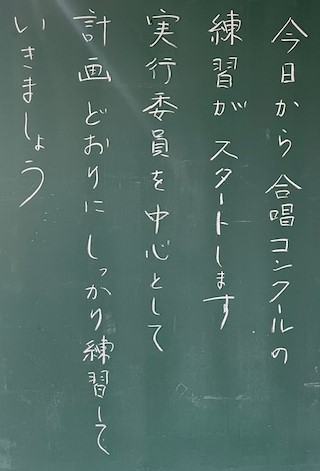 今日から合唱コンクールの
練習がスタートします
実行委員を中心として
計画どおりにしっかり練習して
いきましょう